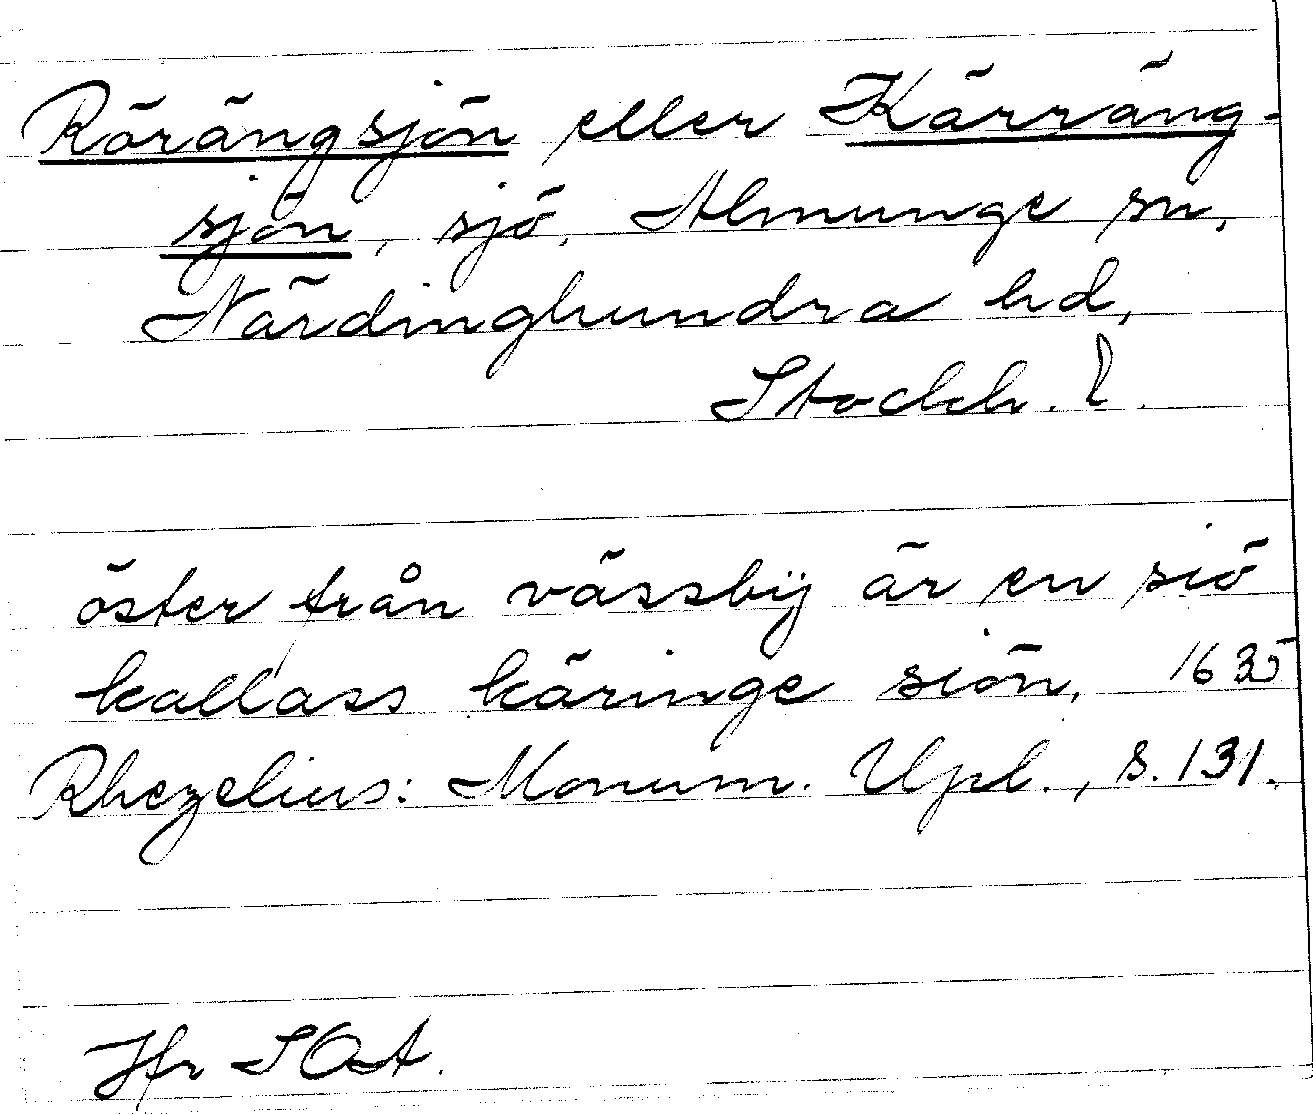 Rörängsjön eller Kärräng-
sjön, sjö, Almunge sn,
Närdinghundra hd,
Stockh. l.
öster från vässbÿ är en siö
kallass käringe siön, 1635
Rhezelius: Monum. Upl., s. 131.
Jfr SOA.